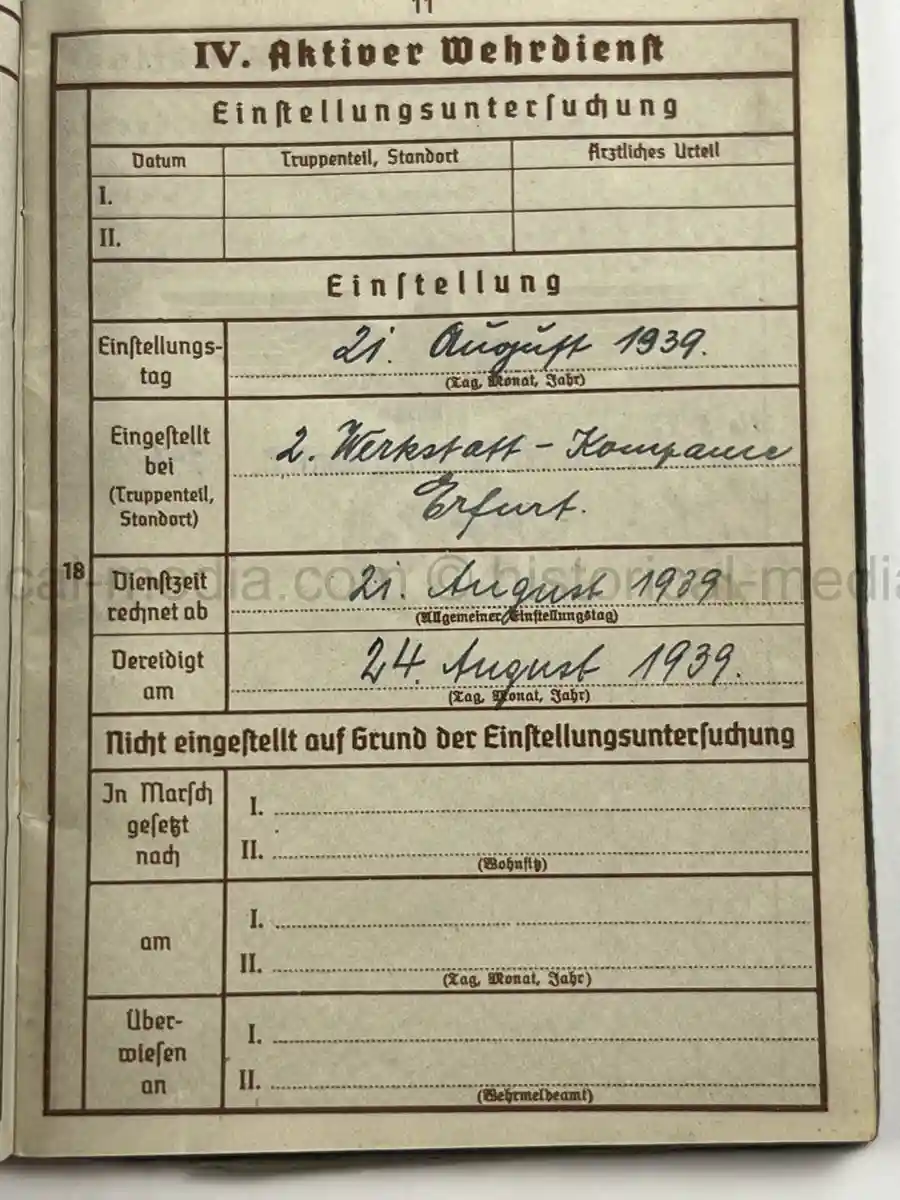 11
IV. Aktiver Wehrdienst
Einstellungsuntersuchung
Datum Truppenteil, Standort Ärztliches Urteil
I.
II.
Einstellung
Einstellungs-
tag
21. August 1939.
(Tag, Monat, Jahr)
Eingestellt
bei
(Truppenteil,
Standort)
2. Werkstatt - Kompanie
Erfurt.
18
Dienstzeit
rechnet ab
21. August 1939
(Allgemeiner Einstellungstag)
Vereidigt
am
24. August 1939.
(Tag, Monat, Jahr)
Nicht eingestellt auf Grund der Einstellungsuntersuchung
In Marsch
gesetzt
nach
I.
II.
(Wohnsitz)
am
I.
II.
(Tag, Monat, Jahr)
Über-
wiesen
an
I.
II.
(Wehrmeldeamt)
cal-media.com © historical-media